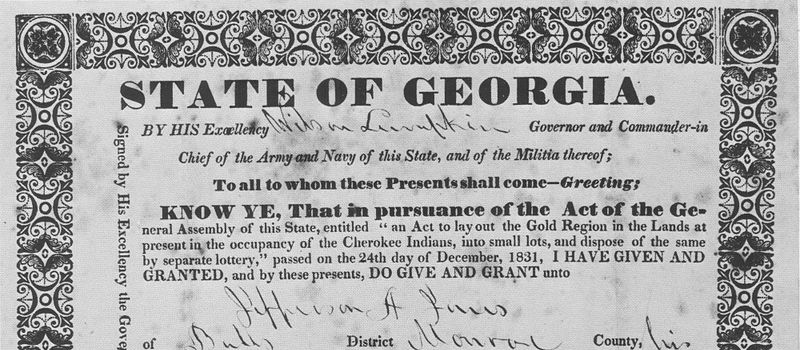 STATE OF GEORGIA.
BY HIS Excellency Wilson Lumpkin Governor and Commander-in
Chief of the Army and Navy of this State, and of the Militia thereof;
To all to whom these Presents shall come—Greeting;
KNOW YE, That in pursuance of the Act of the Ge-
neral Assembly of this State, entitled "an Act to lay out the Gold Region in the Lands at
present in the occupancy of the Cherokee Indians, into small lots, and dispose of the same
by separate lottery," passed on the 24th day of December, 1831, I HAVE GIVEN AND
GRANTED, and by these presents, DO GIVE AND GRANT unto
Jefferson A
of District Monroe County, his
Signed by His Excellency the Gove